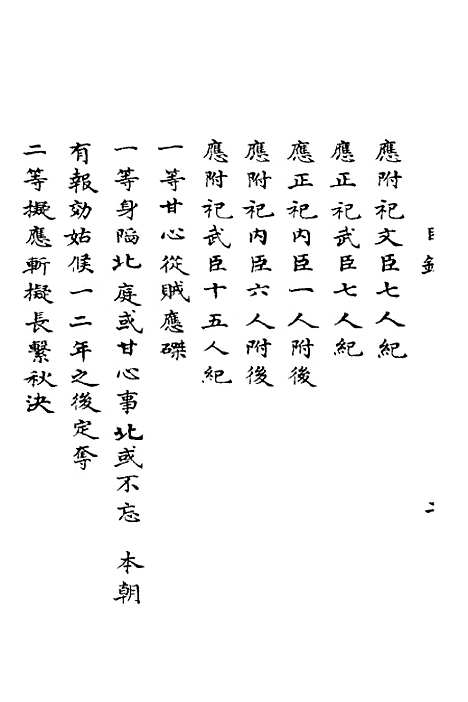 目錄 二
應附祀文臣七人紀
應正祀武臣七人紀
應正祀内臣一人附後
應附祀内臣六人附後
應附祀武臣十五人紀
一等甘心從賊應磔
一等身陷北庭或甘心事北或不忘 本朝
有報効姑候一二年之後定奪
二等擬應斬擬長繫秋決